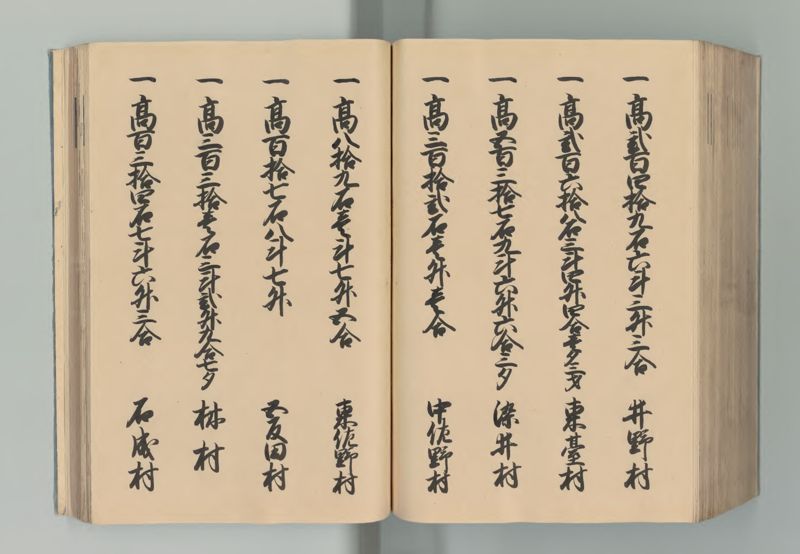 一 高弐百四拾九石六斗三升三合 井野村
一 高弐百六拾八石三斗四升四合壱夕三才 東臺村
一 高五百三拾七石九斗六升六合三夕 染井村
一 高三百拾弐石壱升壱合 中佐野村
一 高八拾九石壱斗七升五合 東佐野村
一 高百拾七石八斗七升 五反田村
一 高三百三拾壱石三斗弐升九合七夕 林村
一 高百三拾四石七斗六升三合 石成村